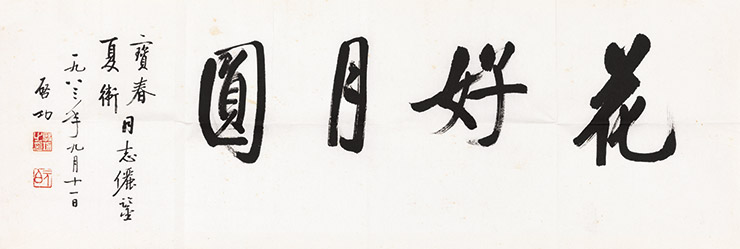 花好月圓
寶春
夏術
同志儷鑒
一九八三年九月十一日
启功